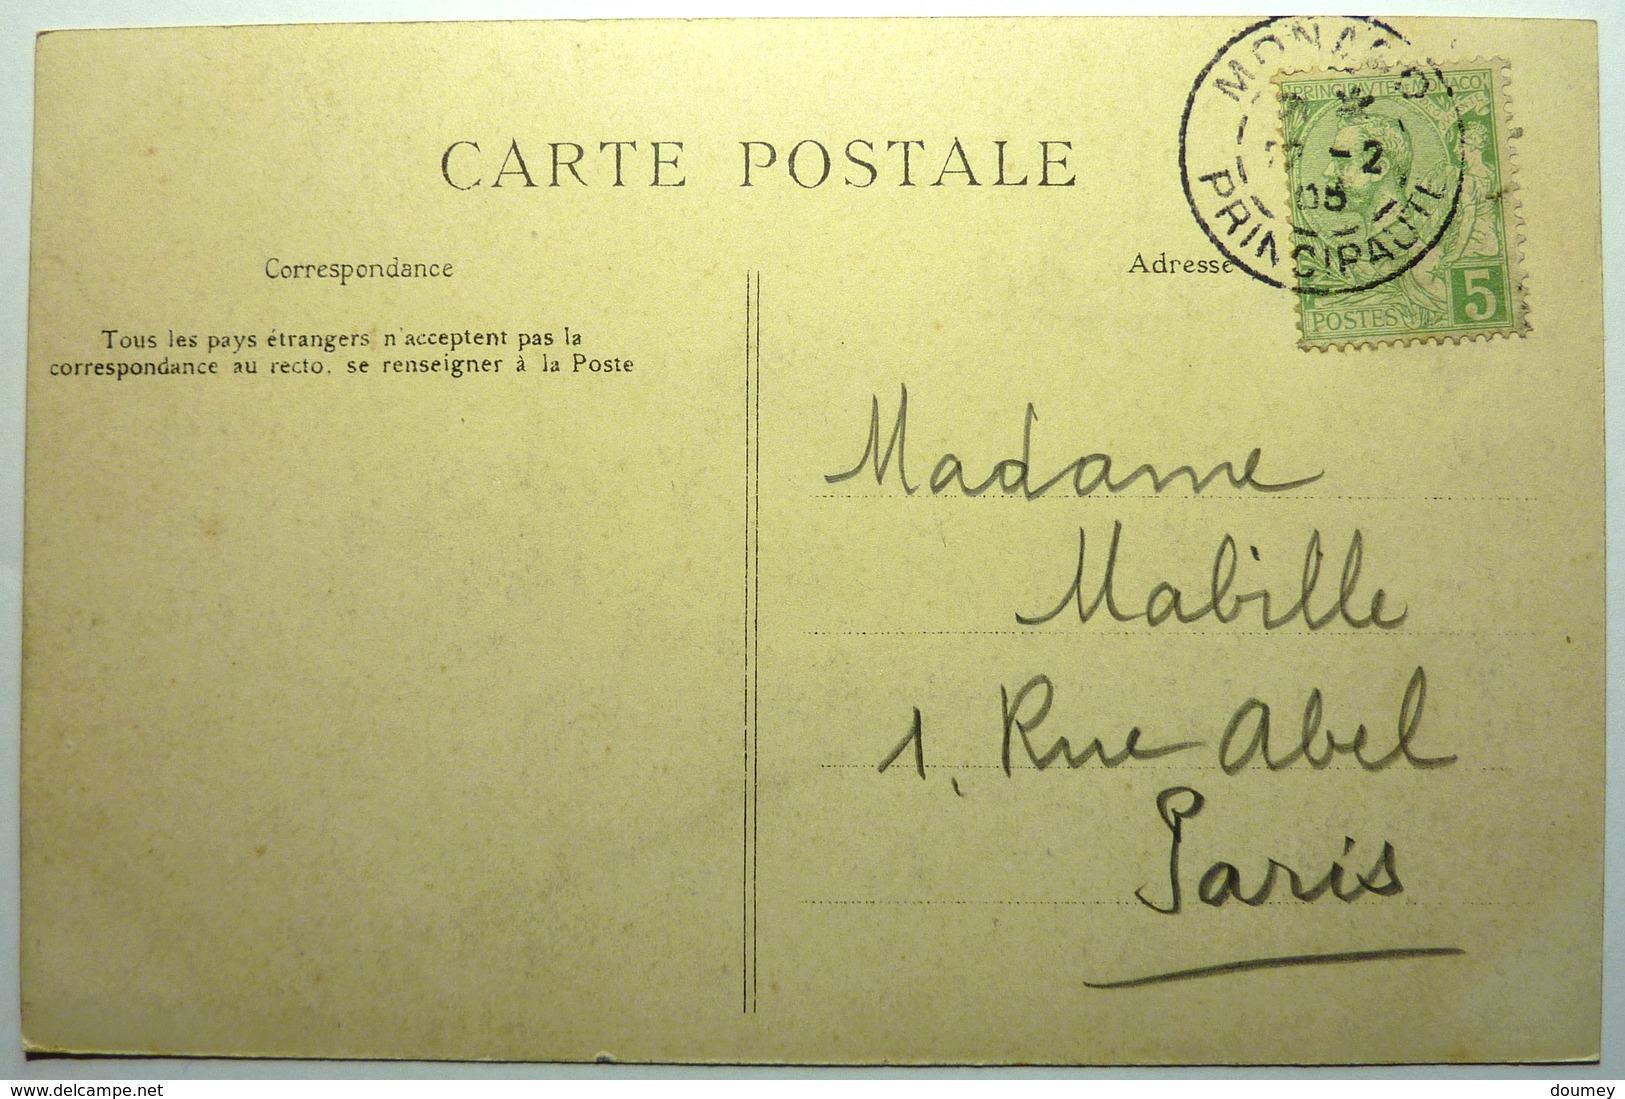 CARTE POSTALE
MONACO
PRINCIPAUTÉ
-2
PRINCIPAUTE DE MONACO
POSTES
5
Correspondance
Adresse
Tous les pays étrangers n'acceptent pas la
correspondance au recto, se renseigner à la Poste
Madame
Mabille
1, Rue Abel
Paris
www.delcampe.net
doumey